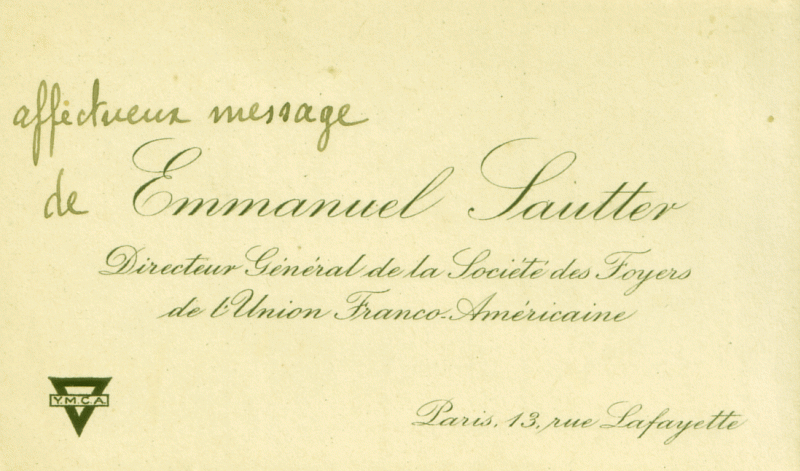 affectueux message
de Emmanuel Sautter
Directeur Général de la Société des Foyers
de l'Union Franco-Américaine
Y.M.C.A.
Paris, 13, rue Lafayette